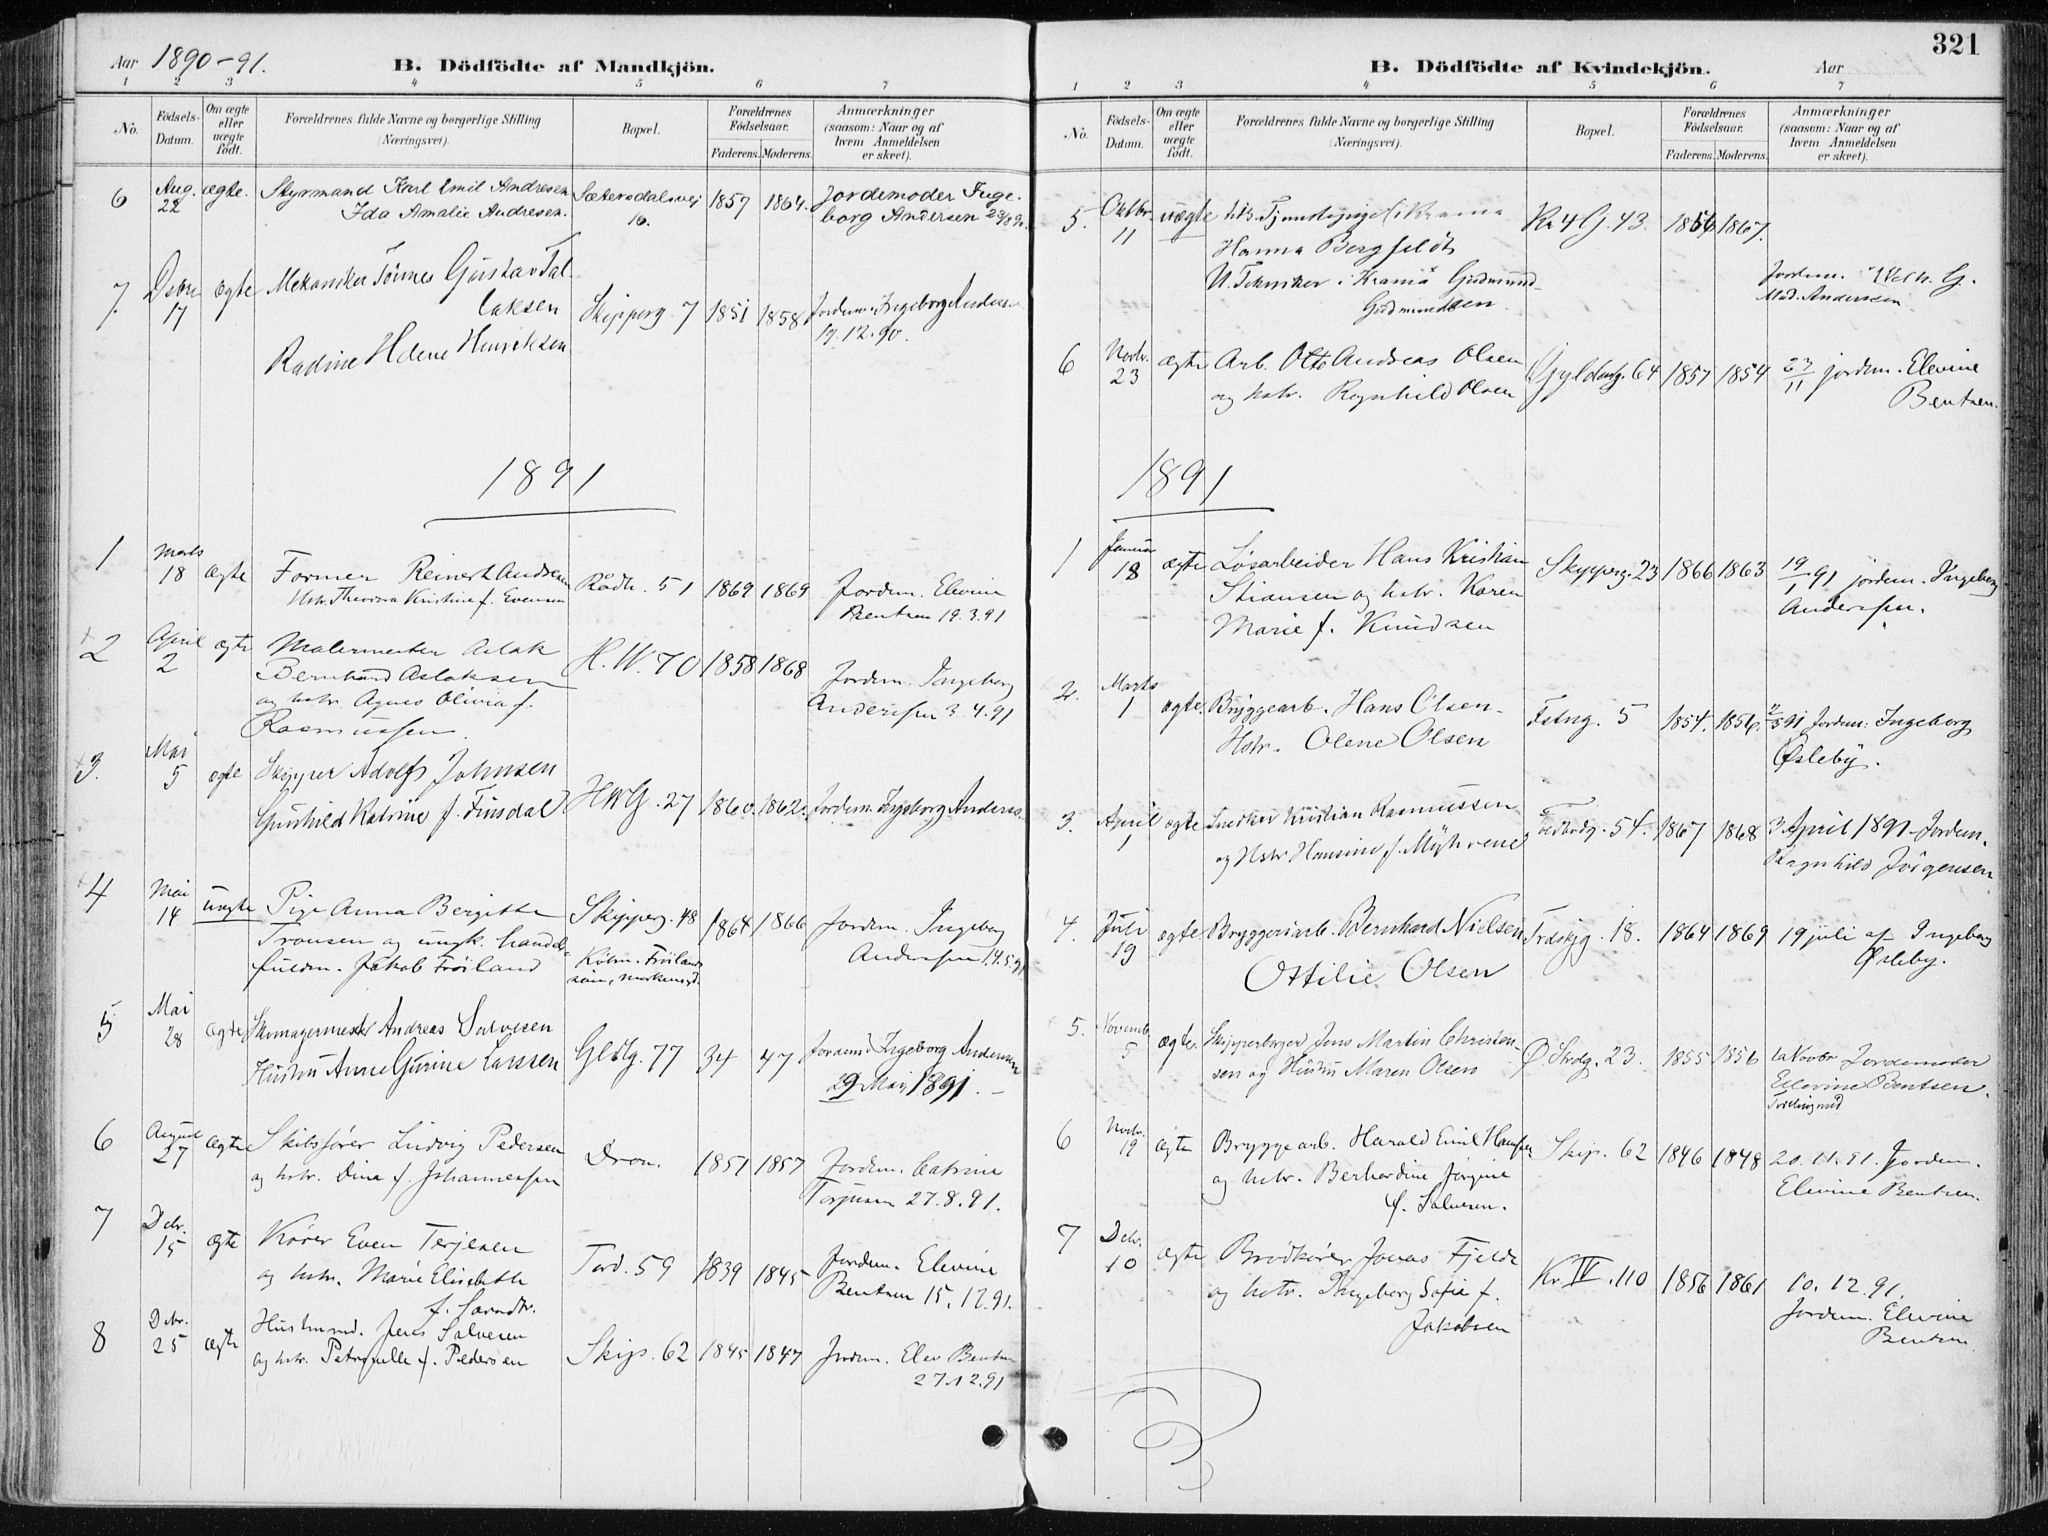 Aar 1890-91. B. Dödfödte af Mandkjön.
1 2 3 4 5 6 7
No. Födsels-Datum. Om ægte eller uægte födt. Forældrenes fulde Navne og borgerlige Stilling (Næringsvei). Bopæl. Forældrenes Födselsaar. Faderens. Moderens. Anmærkninger (saasom: Naar og af hvem Anmeldelsen er skeet).
6 Aug. 22 ægte. Styrmand Karl Emil Andresen Sætersdalsvej 1857 1864. Jordemoder Inge-
Ida Amalie Andresen. 16. borg Andersen 23/8 90.
7. Debr 17 ægte Mekaniker Tönnes Gustav Tal
laksen Skipperg. 7 1851 1858 Jordem. Ingeborg Anders
Radine Helene Henriksen 19.12.90.
1891
1 Marts 18 ægte Former Reinert Andsen Rådh. 51 1869 1869 Jordem. Elevine
Hstr. Theodora Kristine f. Evensen Bentsen 19.3.91
2 April 2 ægte Malermester Aslak H.W. 70 1858 1868
Bernhard Aslaksen Jordem. Ingeborg
og hstr. Agnes Olivia f. Anderssen 3.4.91
Rasmussen.
3. Mai 5 ægte Skipper Adolf Johnsen
Gunhild Katrine f. Finsdal HWG. 27 1860. 1862. Jordem. Ingeborg Anders.
4 Mai 14 uægte Pige Anna Bergitte Skipperg. 48 1864 1866 Jordem. Ingeborg
Tronsen og ungk. handels- Anderssen 14.5.91
fuldm. Jakob Fröiland
5 Mai 28 ægte Skomagermester Andreas Salvesen
Hustru Anne Gurine Larssen Gldlg. 77 34 47 Jordem. Ingeborg Andersen
29 Mai 1891.
6 August 27 ægte Skibsfører Ludvig Pedersen Dron. 1851 1857 Jordem. Catrine
og hstr. Dina f. Johannessen Torjusen 27.8.91.
7 Debr. 15 ægte Kører Even Terjesen Tord. 59 1839 1845 Jordem. Elevine
og hstr. Marie Elisabeth Bentsen 15.12.91.
8 Debr. 25 ægte Husmand. Jens Salvesen Skip. 62 1845 1847 Jordem. Elev Bentsen
og hstr. Petronelle f. Pedersen 27.12.91
321
B. Dödfödte af Kvindekjön. Aar
1 2 3 4 5 6 7
No. Födsels-Datum. Om ægte eller uægte födt. Forældrenes fulde Navne og borgerlige Stilling (Næringsvei). Bopæl. Forældrenes Födselsaar. Faderens. Moderens. Anmærkninger (saasom: Naar og af hvem Anmeldelsen er skeet).
5. Oktbr. 11 uægte Tjenstepige i Krania Kr 4 G. 43. 1866 1867.
Hanna Bergfeldt
U. Tekniker i Krania Gudmund Jordem.
Gudmundsen. Mad. Anderssen
6 Novbr. 23 ægte Arb. Otto Andreas Olsen Gyldenlg. 64 1857 1854 23/11 jordem. Elevine
og hstr. Ragnhild Olsen Bentsen.
1891
1 Januar 18 ægte Løsarbeider Hans Kristian Skipperg. 23 1866 1863 19/1 91 jordem. Ingeborg
Stiansen og hstr. Karen Anderssen.
Marie f. Knudsen
2. Marts 1 ægte. Bryggearb. Hans Olsen- Fstng. 5 1854. 1856. 2/3 91 Jordem: Ingeborg
Hstr. Olene Olsen Østeby.
3. April 1 ægte Snedker Kristian Rasmussen 54. 1867 1868 3 April 1891 Jordem.
og Hstr Hansine f. Myhrene Ragnhild Jörgensen
4. Juli 19 ægte Bryggeriarb. Bernhard Nielsen Trdskjg. 18. 1864 1869 19 juli af Ingeborg
Ottilie Olsen Østeby.
5. Novemb 5 ægte. Skipperborger Jens Martin Christen-
sen og Hustru Maren Olsen Ø. Strdg. 23. 1855 1856 Novbr Jordemoder
Ellevine Bentsen.
6 Novbr. 19 ægte Bryggearb. Harald Emil Hansen Skip. 62 1846 1848 20.11.91. Jordem.
og hstr. Berhardine Jørgine Elevine Bentsen
f. Salvesen.
7 Debr. 10 ægte Brødkører Jonas Fjelde Kr. IV. 110 1856 1861 10.12.91.
og hstr. Ingeborg Sofie f. Jordem. Elevine
Jakobsen Bentsen